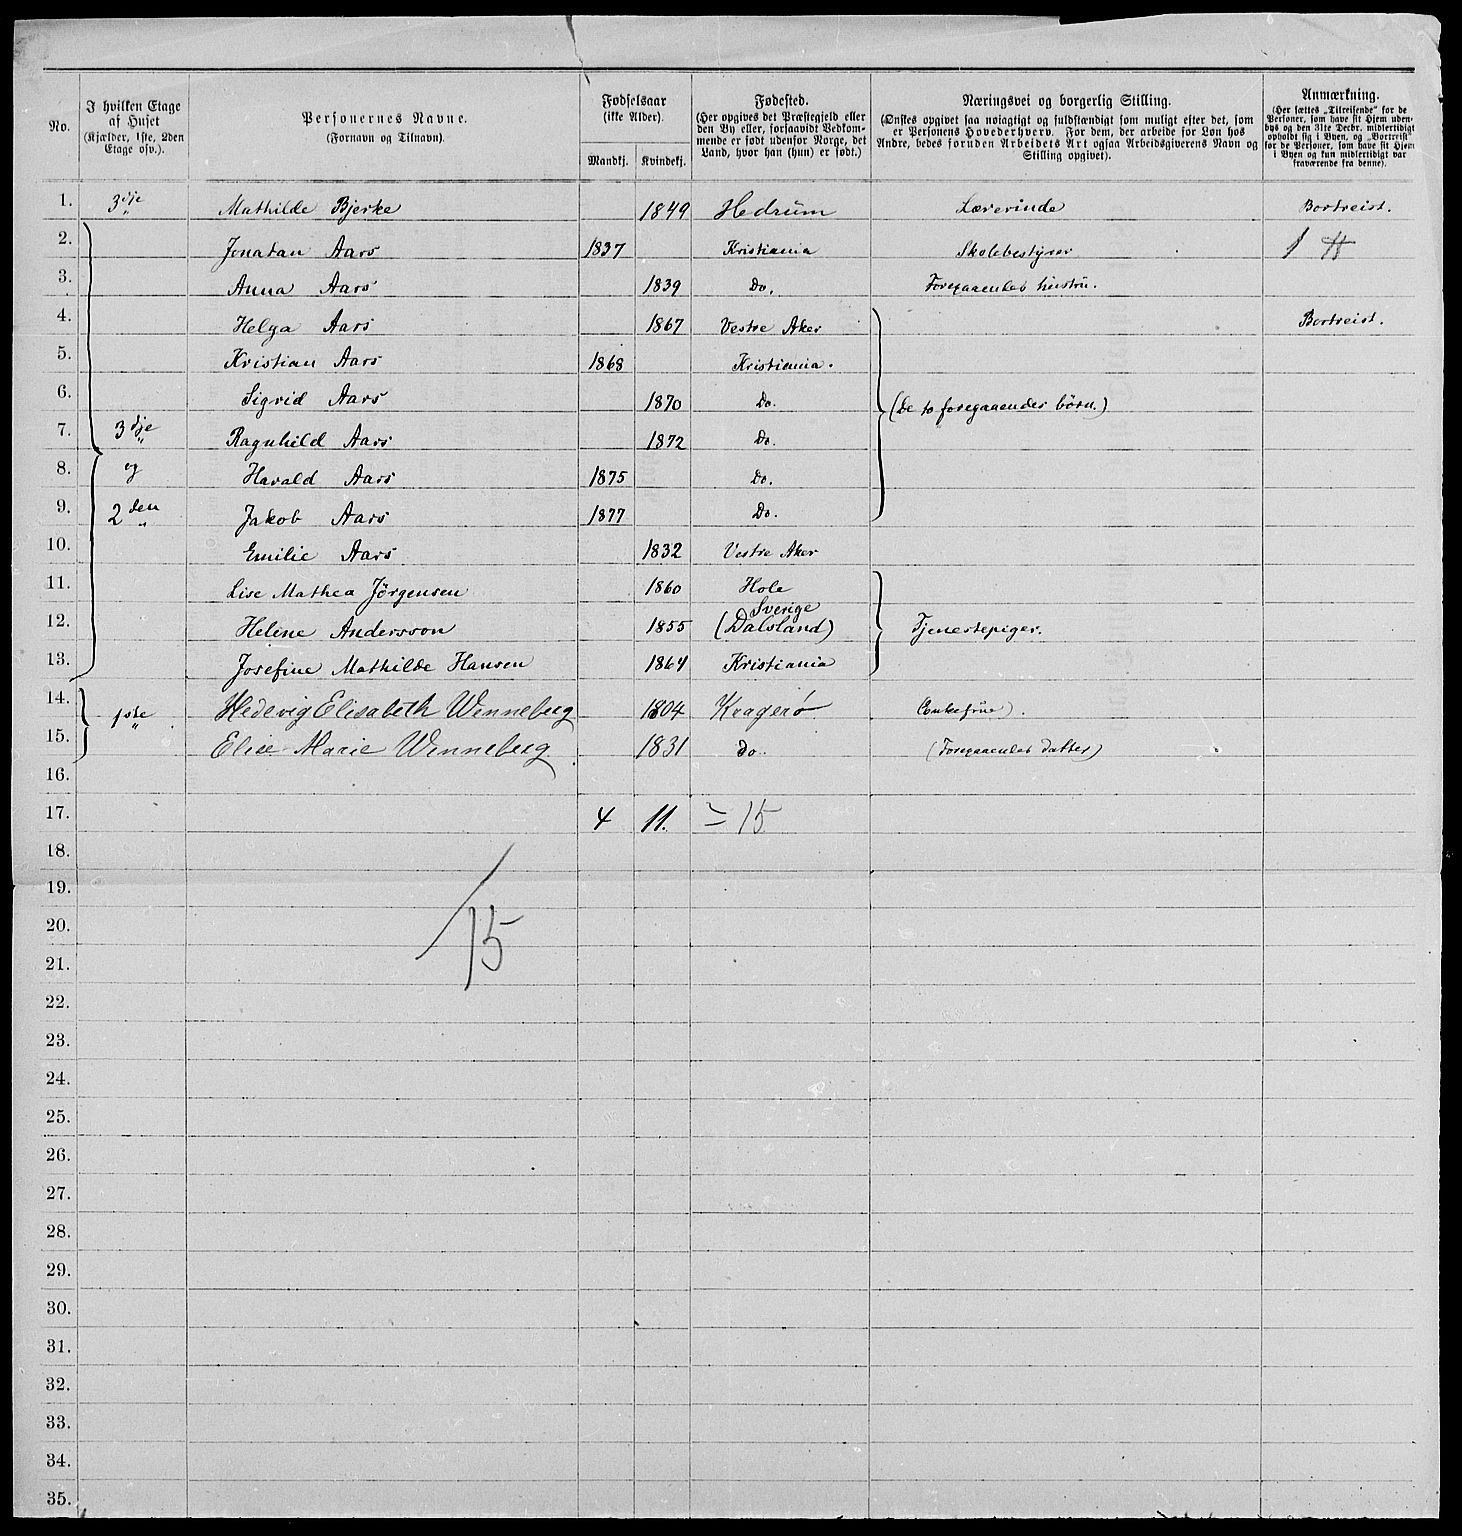 No.
I hvilken Etage
af Huset
(Kjælder, 1ste, 2den
Etage osv.).
Personernes Navne.
(Fornavn og Tilnavn).
Fødselsaar
(ikke Alder).
Mandkj. Kvindekj.
Fødested.
(Her opgives det Præstegjeld eller
den By eller, forsaavidt Vedkom-
mende er født udenfor Norge, det
Land, hvor han (hun) er født.)
Næringsvei og borgerlig Stilling.
(Ønskes opgivet saa nøiagtigt og fuldstændigt som muligt efter det, som
er Personens Hovederhverv. For dem, der arbeide for Løn hos
Andre, bedes foruden Arbeidets Art ogsaa Arbeidsgiverens Navn og
Stilling opgivet).
Anmærkning.
(Her sættes „Tilreisende“ for de
Personer, som have sit Hjem uden-
bys og den 31te Decbr. midlertidigt
opholdt sig i Byen, og „Bortreist“
for de Personer, som have sit Hjem
i Byen og kun midlertidigt var
fraværende fra denne).
1. 3dje Mathilde Bjerke 1849 Hedrum Lærerinde Bortreist.
2. Jonatan Aars 1837 Kristiania Skolebestyrer
3. Anna Aars 1839 Do. Foregaaendes hustru.
4. Helga Aars 1867 Vestre Aker Bortreist.
5. Kristian Aars 1868 Kristiania.
6. Sigrid Aars 1870 Do. (De to foregaaendes børn.)
7. 3dje Ragnhild Aars 1872 Do.
8. og Harald Aars 1875 Do.
9. 2den Jakob Aars 1877 Do.
10. Emilie Aars 1832 Vestre Aker
11. Lise Mathea Jörgensen 1860 Hole
Sverige
12. Helene Andersson 1855 (Dalsland) Tjenestepiger.
13. Josefine Mathilde Hansen 1864 Kristiania
14. 1ste Hedevig Elisabeth Wenneberg 1804 Kragerö (Enkefrue).
15. Elise Marie Wenneberg 1831 Do. (Foregaaendes datter)
16.
17. 4 11. = 15
18.
19.
20. 15
21.
22.
23.
24.
25.
26.
27.
28.
29.
30.
31.
32.
33.
34.
35.